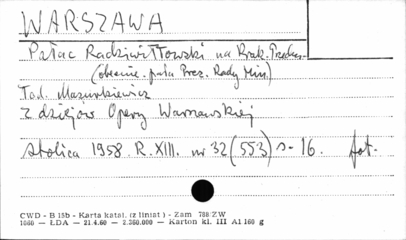 WARSZAWA
Pałac Radziwiłłowski na Krak. Przedm.
(obecnie pała Prez. Rady Min.)
Tad. Mazurkiewicz
Z dziejów Opery Warszawskiej
Stolica 1958. R. XIII. nr 32 (553) s. 16. fot.
CWD - B 15b - Karta katal. (z liniat) - Zam 788/ZW
1060 — ŁDA — 21.4.60 — 2.360.000 — Karton kl. III A1 160 g